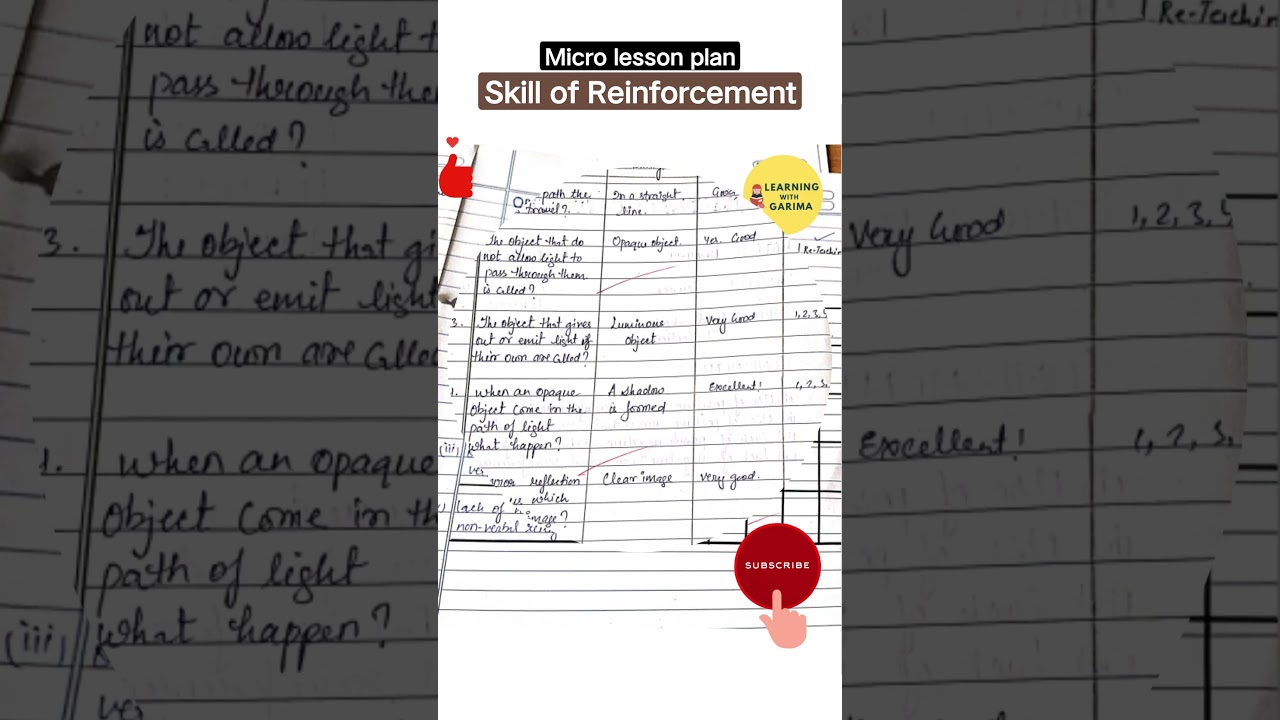 Micro lesson plan
Skill of Reinforcement
LEARNING
WITH
GARIMA
path the
travel?
In a straight
line.
The object that do
not allow light to
pass through them
is called?
Opaque object.
Yes. Good
Re-Teachin
3. The object that gives
out or emit light of
their own are called?
Luminous
object
Very Good
1, 2, 3, 5
1. When an opaque
object come in the
path of light
what happen?
A shadow
is formed
Excellent!
1, 2, 3,
(iii)
ver
reflection
which
image?
Clear image
very good.
lack of
non-verbal
SUBSCRIBE
not allow light t
pass through the
is called?
3. The object that gi
out or emit light
their own are called
1. When an opaque
object come in th
path of light
what happen?
(iii)
ver
Re-Teachin
Very Good
1, 2, 3, 5
Excellent!
1, 2, 3,